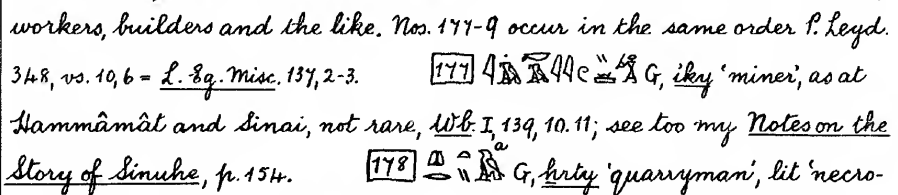 workers, builders and the like. Nos. 177-9 occur in the same order P. Leyd.
348, vs. 10, 6 = L. Eg. Misc. 137, 2-3. 177 G, iky 'miner', as at
Hammâmât and Sinai, not rare, Wb. I, 139, 10. 11; see too my Notes on the
Story of Sinuhe, p. 154. 178 a G, hrty 'quarryman', lit 'necro-